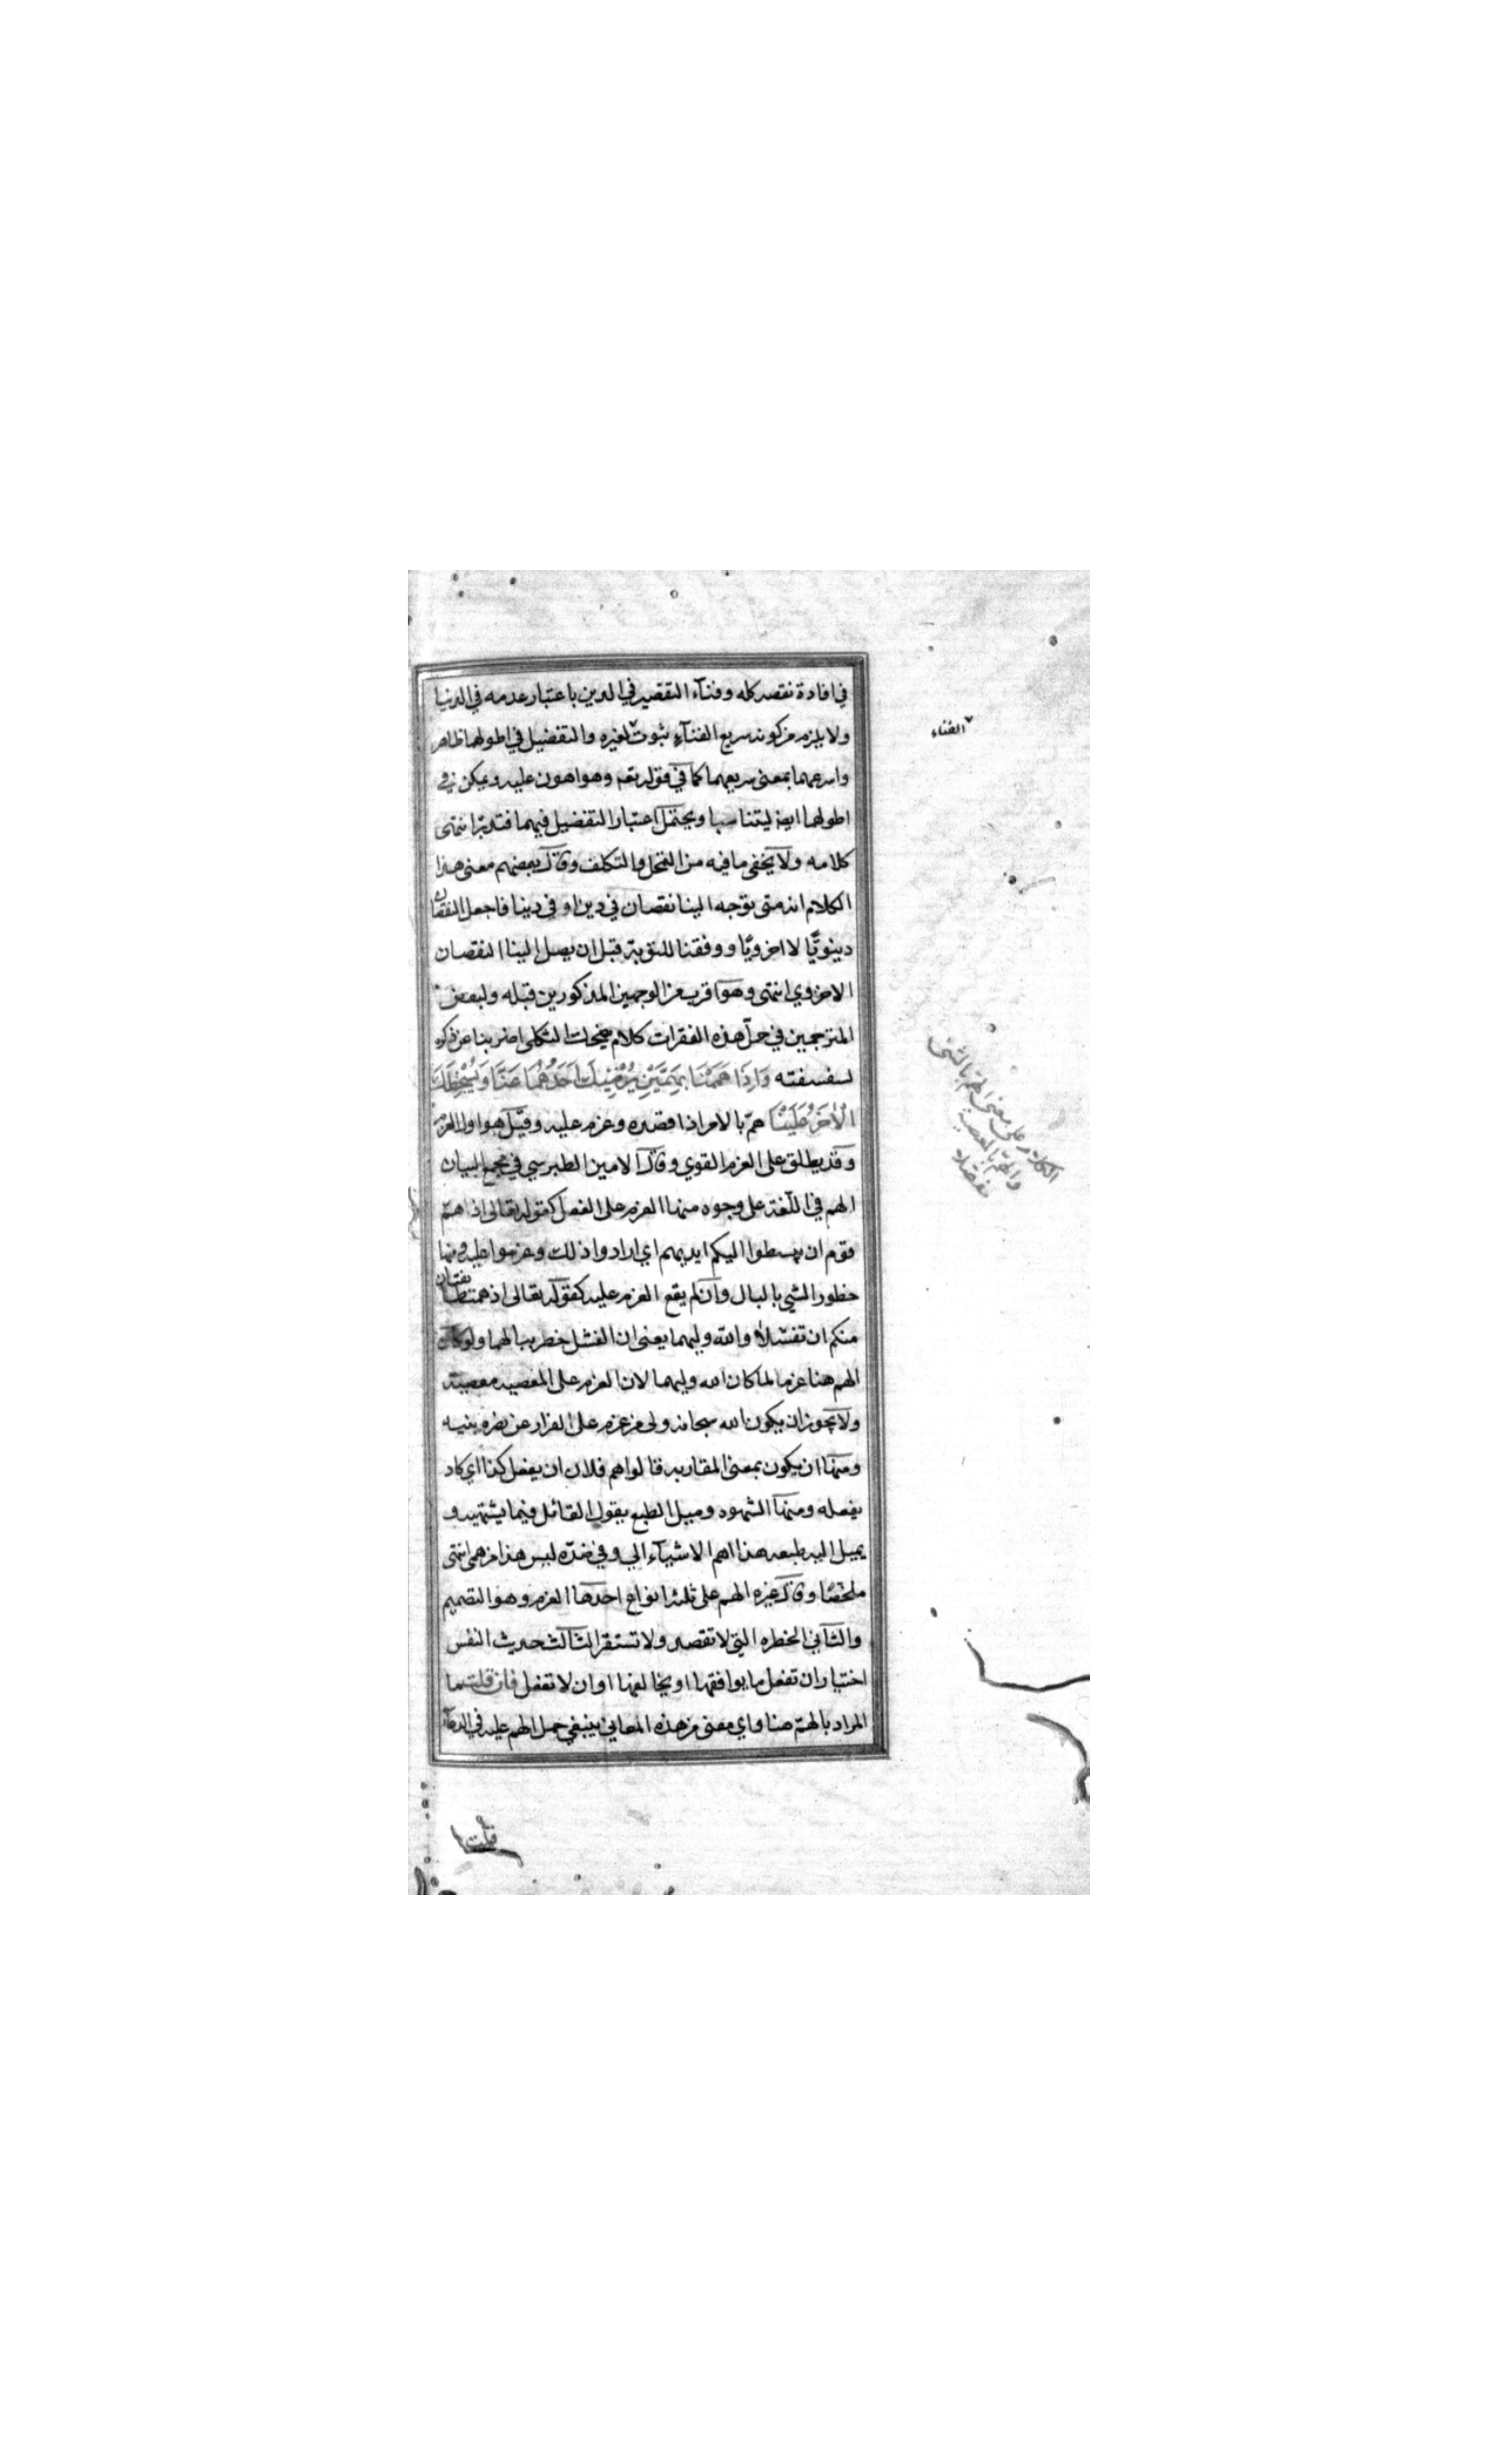 في افادة نقصد كله وفنآء التقصير في الدين باعتبار عدمه في الدنيا
ولا يلزم من كونه سريع الفنآء ثبوت لغيره والتفضيل في اطولهما ظاهر
الفناء
واسرعهما بمعنى سريعهما كما في قوله تعه وهو اهون عليه ويمكن في
اطولهما ايضا ليتناسبا ويحتمل اعتبار التفضيل فيهما فتدبر انتهى
كلامه ولا يخفى ما فيه من التمحل والتكلف وقال بعضهم معنى هذا
الكلام انه متى توجه الينا نقصان في دين او في دينا فاجعل النقصان
دينويًّا لا اخرويًا ووفقنا للتوبة قبل ان يصل الينا النقصان
الاخروي انتهى وهو اقرب من الوجهين المذكورين قبله ولبعض
المترجمين في حل هذه الفقرات كلام يضحك الثكلى اضربنا عن ذكره
لسفسفته وَاِذَا هَمَمْنَا بِهَمَّيْنِ يُرْضِيكَ اَحَدُهُمَا عَنَّا وَيُسْخِطُكَ
الْاٰخَرُ عَلَيْنَا همّ بالامر اذا قصده وعزم عليه وقيل هو اول العزم
الكلام على معنى الهم بالشئ
والهم بالمعصية
مفصلا
وقد يطلق على العزم القوي وقال الامين الطبرسي في مجمع البيان
الهم في اللّغة على وجوه منها العزم على الفعل كقوله تعالى اذ همّ
قوم ان يبسطوا اليكم ايديهم اي ارادوا ذلك وعزموا عليه ومنها
خطور الشئ بالبال وان لم يقع العزم عليه كقوله تعالى اذ همت طائفتان
منكم ان تفشلا والله وليهما يعنى ان الفشل خطر ببالهما ولو كان
الهم هنا عزما لما كان الله وليهما لان العزم على المعصيه معصية
ولا يجوز ان يكون الله سبحانه ولى من عزم على الفرار عن نصره نبيه
ومنها ان يكون بمعنى المقاربه قالوا هم فلان ان يفعل كذا اي كاد
يفعله ومنها الشهوه وميل الطبع يقول القائل فيما يشتهيه و
يميل اليه طبعه هذا اهم الاشيآء الي وفي ضدّه ليس هذا من همى انتهى
ملخصًا وقال غيره الهم على ثلثه انواع احدها العزم وهو التصميم
والثاني الخطره التي لا تقصد ولا تستقر الثالث حديث النفس
اختيار ان تفعل ما يوافقها او يخالفها او ان لا تفعل فان قلت ما
المراد بالهمّ هنا واي معنى من هذه المعاني ينبغي حمل الهم عليه في الدعآء
قلت